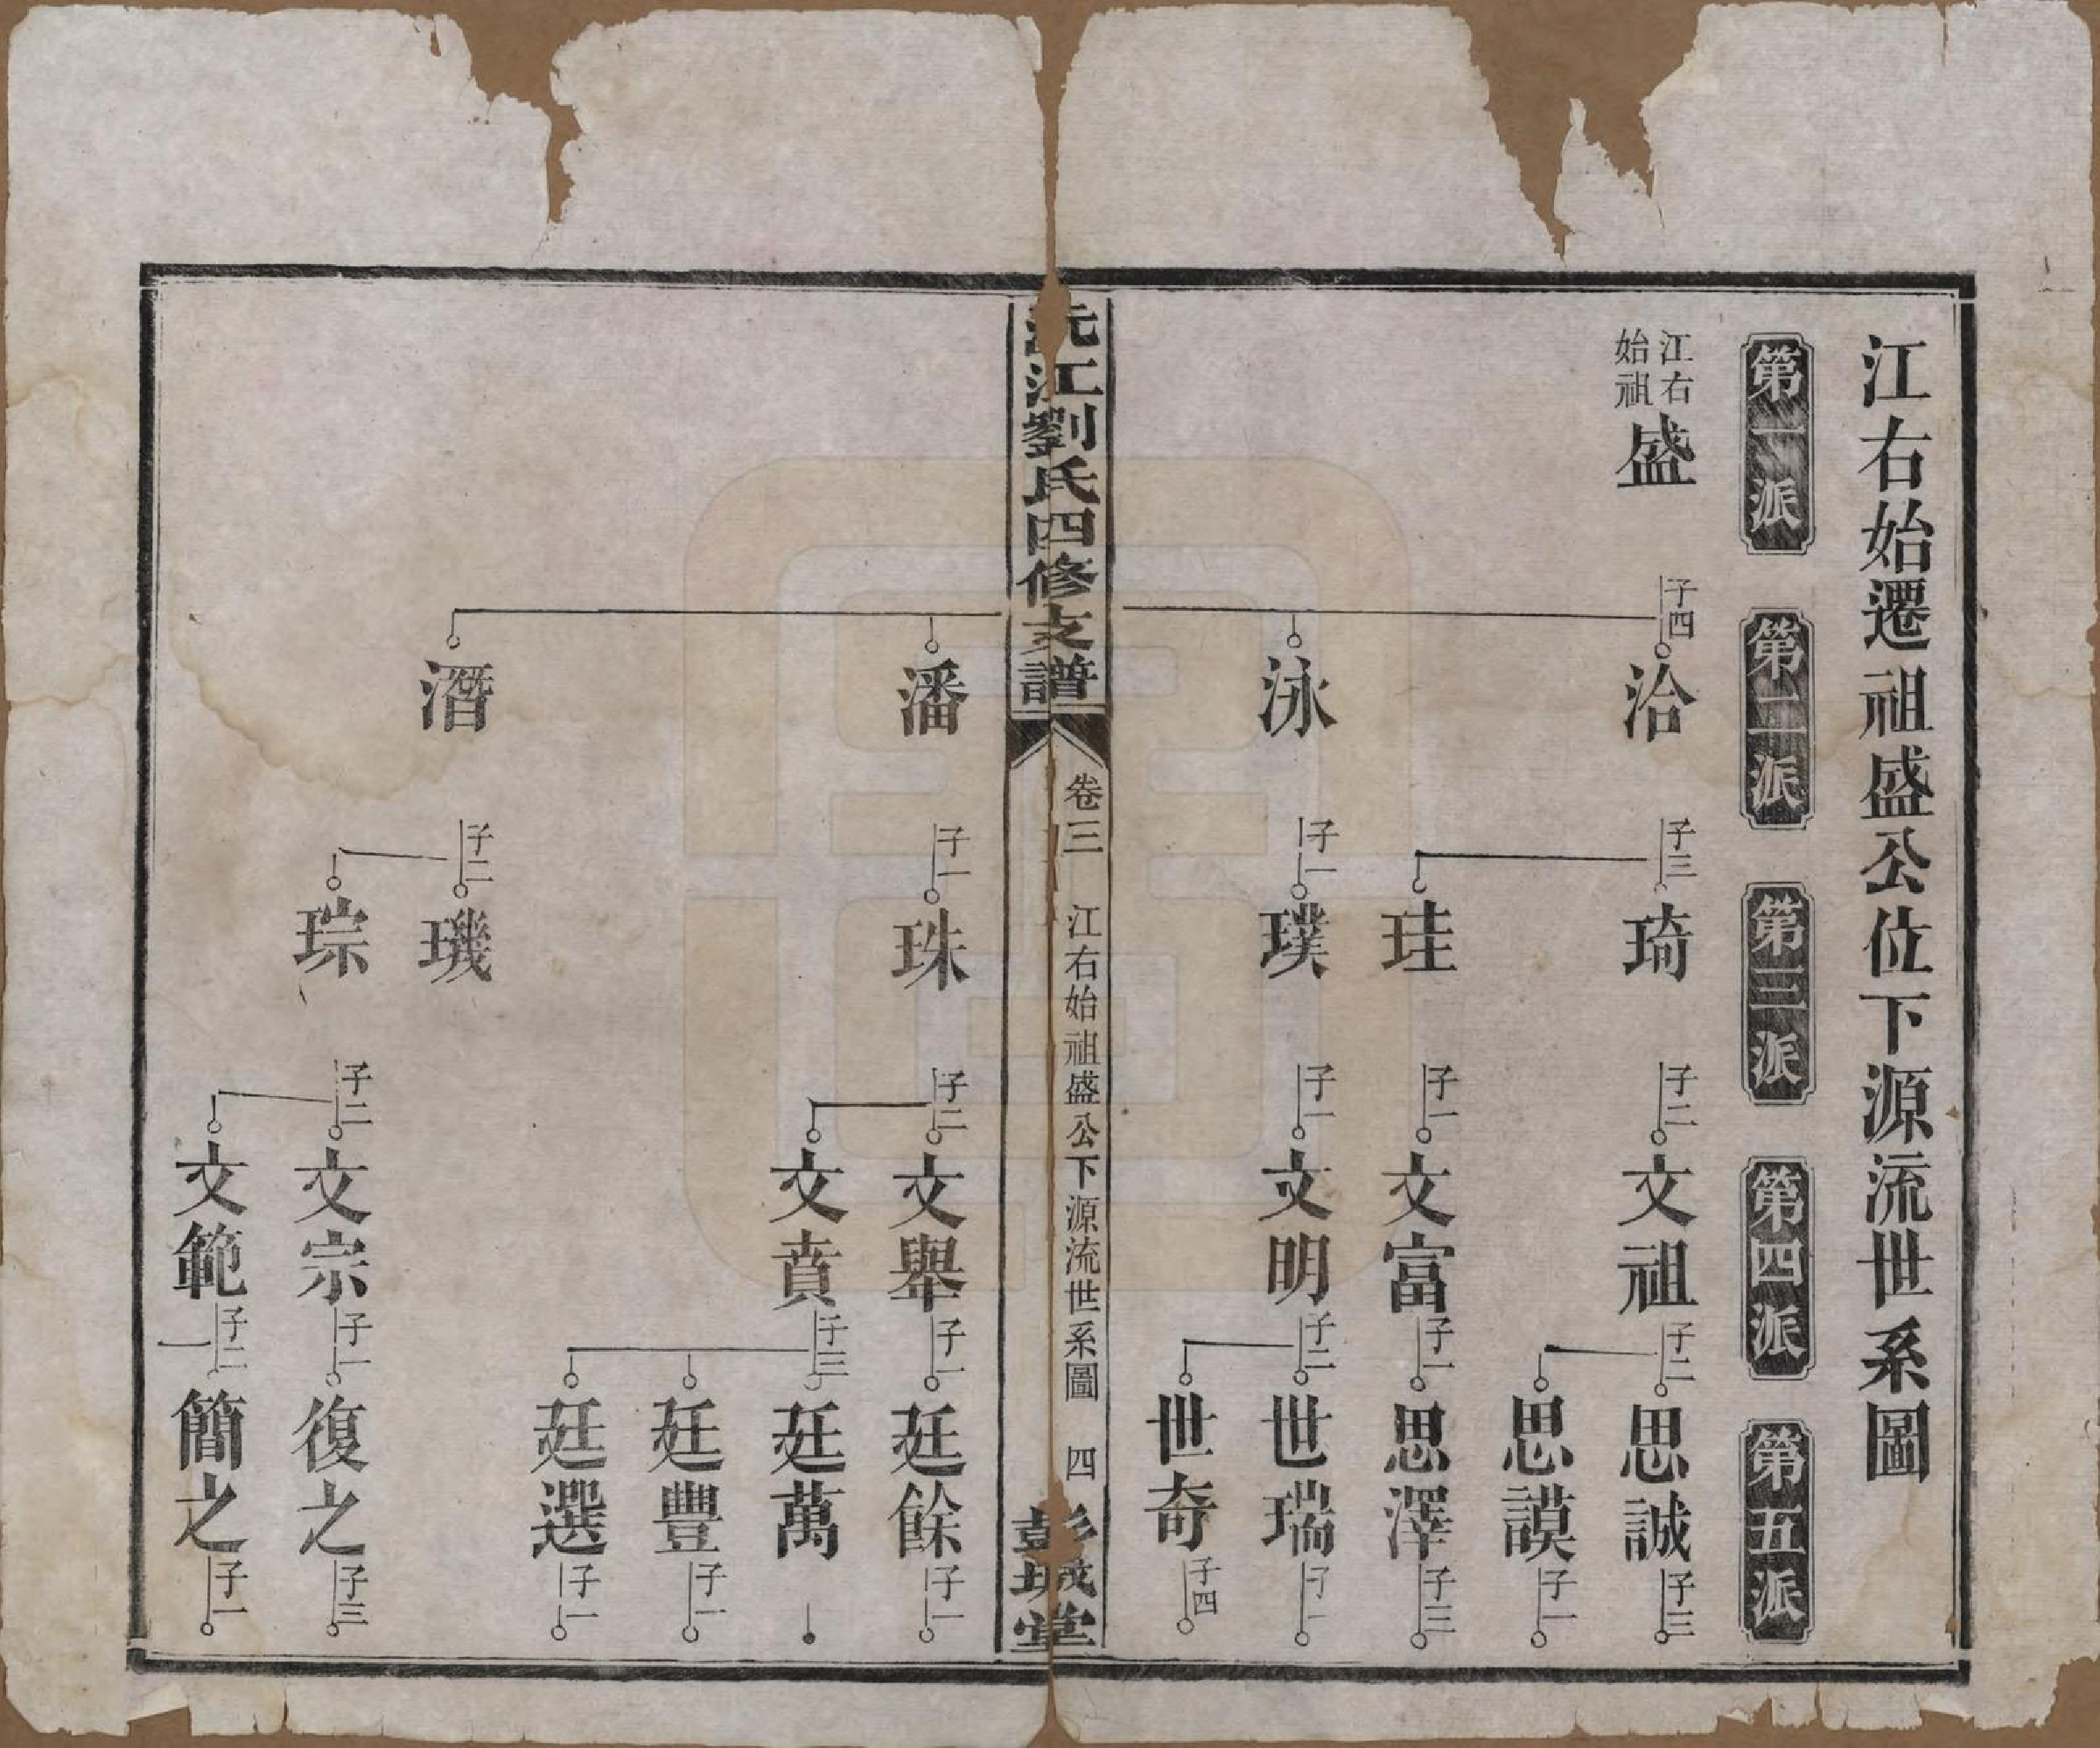 江右始遷祖盛公位下源流世系圖
第一派
第二派
第三派
第四派
第五派
江右始祖
盛
子四
洽
子三
琦
子二
文祖
子二
思誠
子三
思謨
子一
珪
子一
文富
子一
思澤
子三
泳
子一
璞
子一
文明
子二
世瑞
世奇
子四
沅江劉氏四修支譜
卷三
江右始祖盛公下源流世系圖
四
彭城堂
潘
子一
珠
子二
文舉
子一
廷餘
子一
文賁
子三
廷萬
廷豐
子一
廷選
子一
潛
子二
璣
琮
子二
文宗
子一
復之
子三
文範
子二
簡之
子一